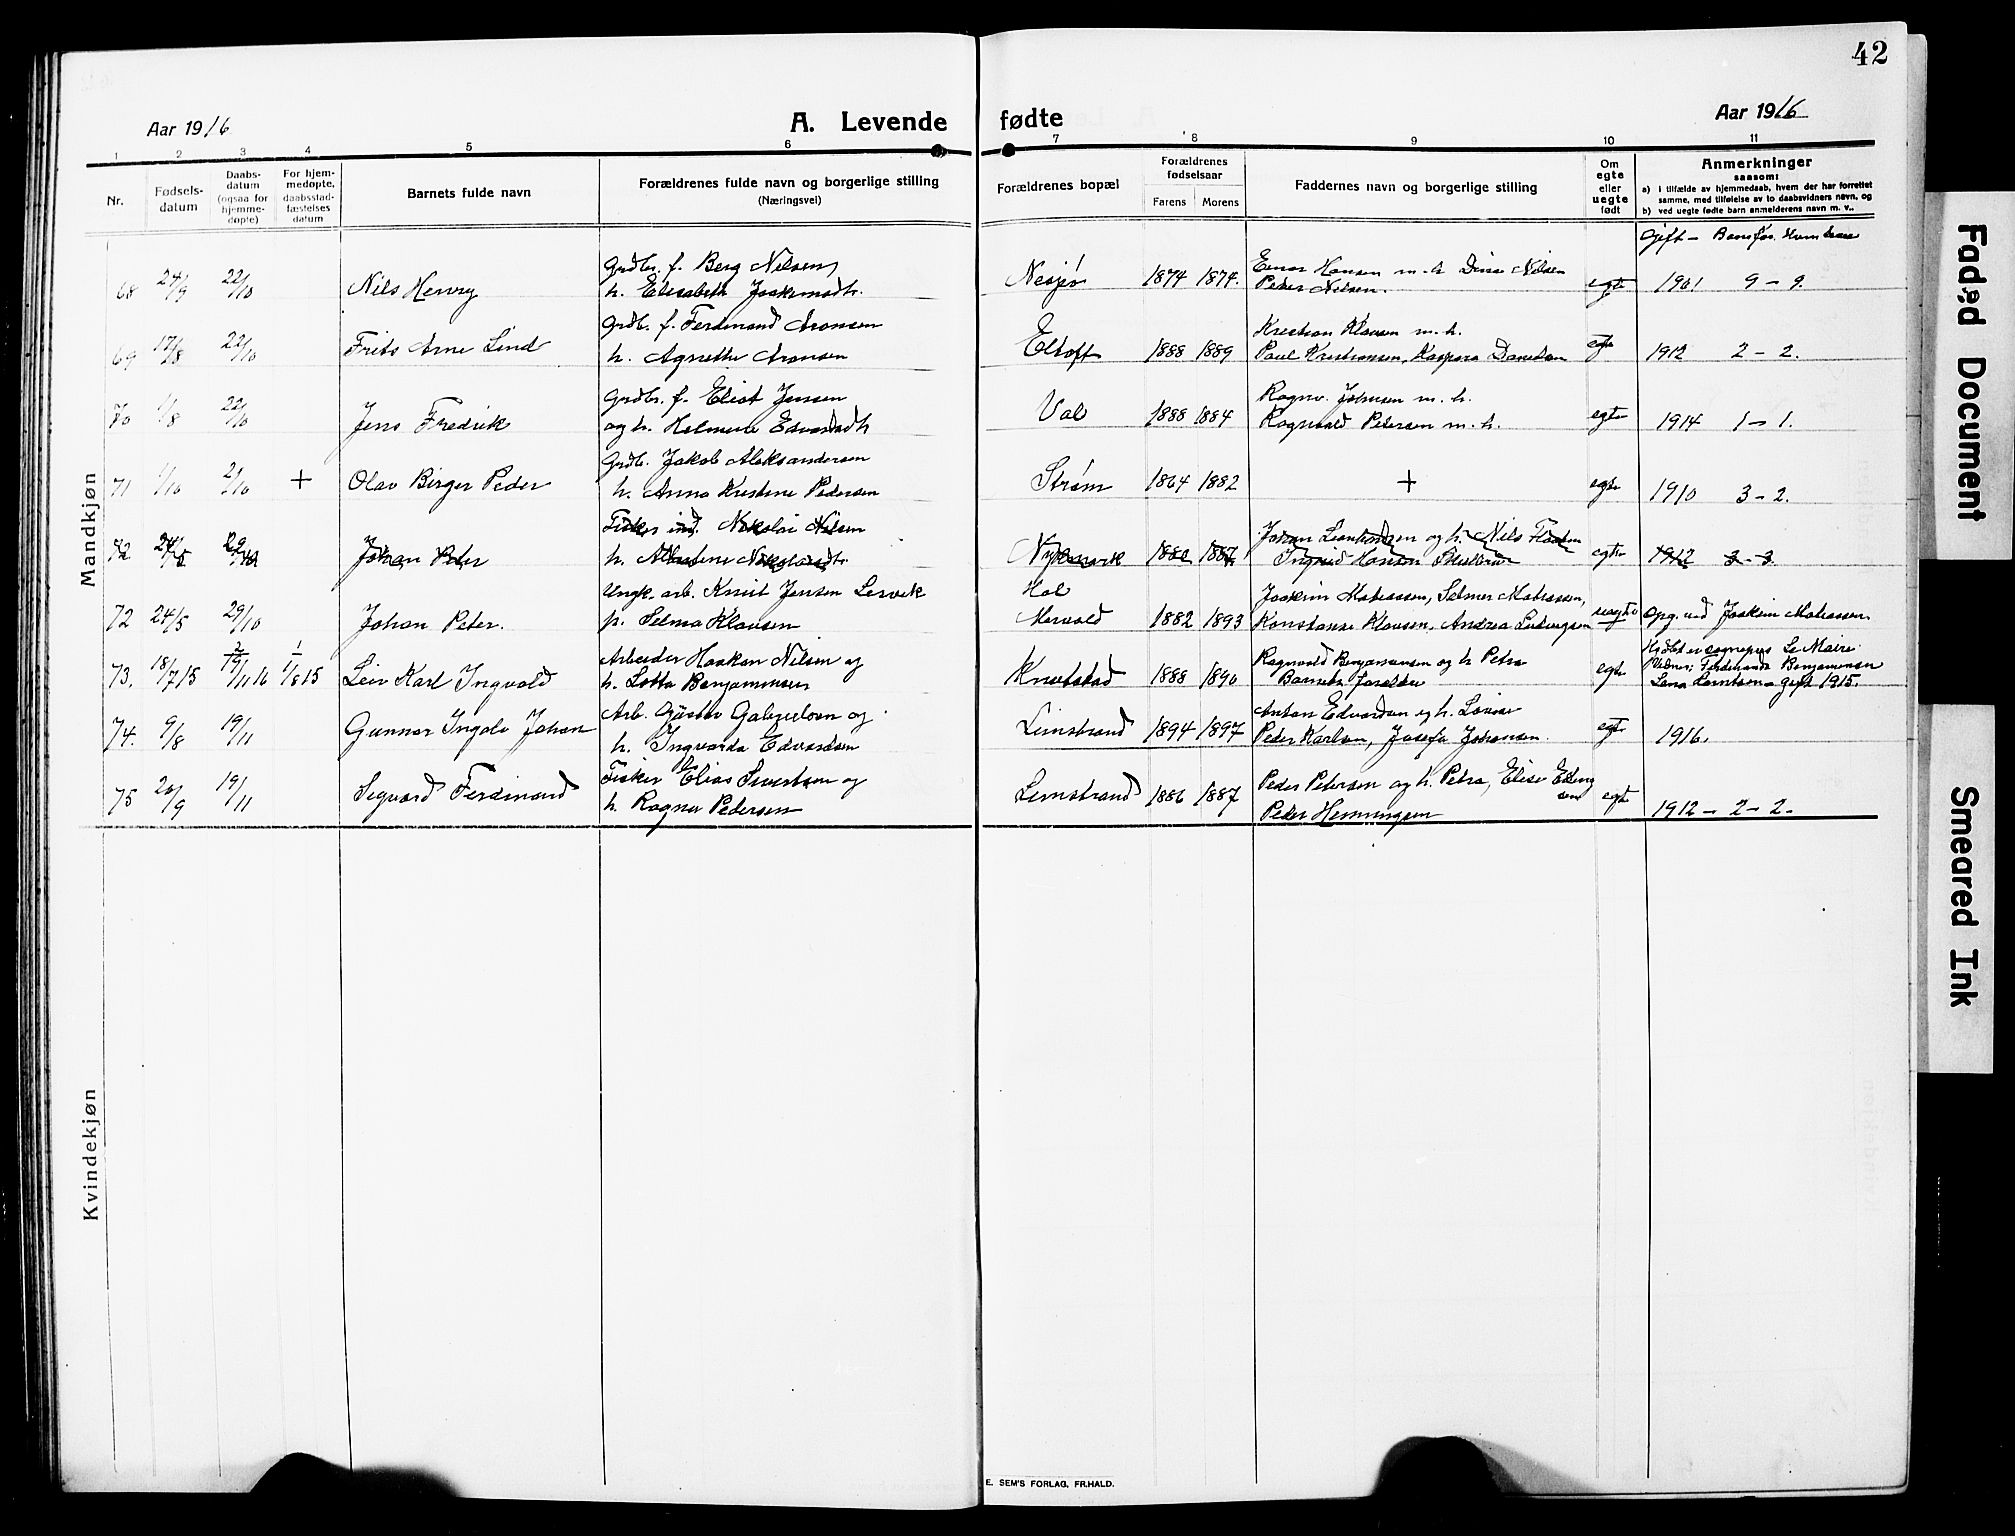 42
Aar 1916
A. Levende fødte
Aar 1916
1 2 3 4 5 6 7 8 9 10 11
Nr.
Fødsels-
datum
Daabs-
datum
(ogsaa for
hjemme-
døpte)
For hjem-
medøpte,
daabsstad-
fæstelses
datum
Barnets fulde navn
Forældrenes fulde navn og borgerlige stilling
(Næringsvei)
Forældrenes bopæl
Forældrenes
fødselsaar
Farens Morens
Faddernes navn og borgerlige stilling
Om
egte
eller
uegte
født
Anmerkninger
saasom:
a) i tilfælde av hjemmedaab, hvem der har forrettet
samme, med tilføielse av to daabsvidners navn, og
b) ved uegte fødte barn anmelderens navn m. v..
Mandkjøn
gift –
68 24/9 22/10 Nils Henry
Grdbr. f. Berg Nilsen,
h. Elisabeth Joakimsdtr.
Nesjø 1874 1874.
Einar Hansen m. h. Dina Nilsen
Peder Nilsen.
egte 1901 9 – 9.
69 17/8 22/10 Frits Arne Lind
Grdb. f. Ferdinand Aronsen
h. Agnethe Aronsen
Eltoft 1888 1889
Kristian Klausen m. h.
Paul Kristiansen, Kaspara Danielsen
egte 1912 2 – 2.
70 1/8 22/10 Jens Fredrik
Grdbr. f. Eliot Jensen
og h. Helmine Edvardsdtr
Val 1888 1884
Ragnv. Johnsen m. h.
Ragnvald Petersen m. h.
egte 1914 1 – 1.
71 1/10 21/10 + Olav Birger Peder
Grdb. Jakob Aleksandersen
h. Anna Kristine Pedersen
Strøm 1864 1882 + egte 1910 3 – 2.
72 24/5 29/10 Johan Peter
Fisker ind. Nikolai Nilsen
h. Albertine Nikolaisdtr.
1887
Johan Leonhardsen og h. Nils
Ingrid Hansen
egte 1912 3 – 3.
72 24/5 29/10 Johan Peter.
Ungk. arb. Knut Jensen Lervik
p. Selma Klausen
Hol
1882 1893
Joakim Mathiassen, Selmer Mathiassen,
Konstanse Klausen, Andrea Ludvigsen
uegte Opg. ved Joakim Mathiassen
73. 18/7 15 19/11 16 1/8 15 Leiv Karl Ingvald
Arbeider Haakon Nilsen og
h. Lotta Benjaminsen
Knutstad 1888 1890
Ragnvald Benjaminsen og h. Petra
Barnets forældre
egte
Hjdøbt av sogneprest Le Maire.
Vidner: Ferdinanda Benjaminsen
Lena Berntsen – gift 1915.
74. 9/8 19/11 Gunnar Ingolv Johan
Arb. Gustav Gabrielsen og
h. Ingvarda Edvardsen
Limstrand 1894 1897
Anton Edvardsen og h. Lovise
Peder Karlsen, Josefa Johansen.
egte 1916.
75 20/9 19/11 Sigvard Ferdinand
Fisker Elias Sivertsen og
h. Ragna Pedersen
Limstrand 1886 1887
Peder Petersen og h. Petra, Elise
Peder Henningsen
egte 1912 – 2 – 2.
Kvindekjøn
E. SEM'S FORLAG, FR.HALD.
Faded Document
Smeared Ink